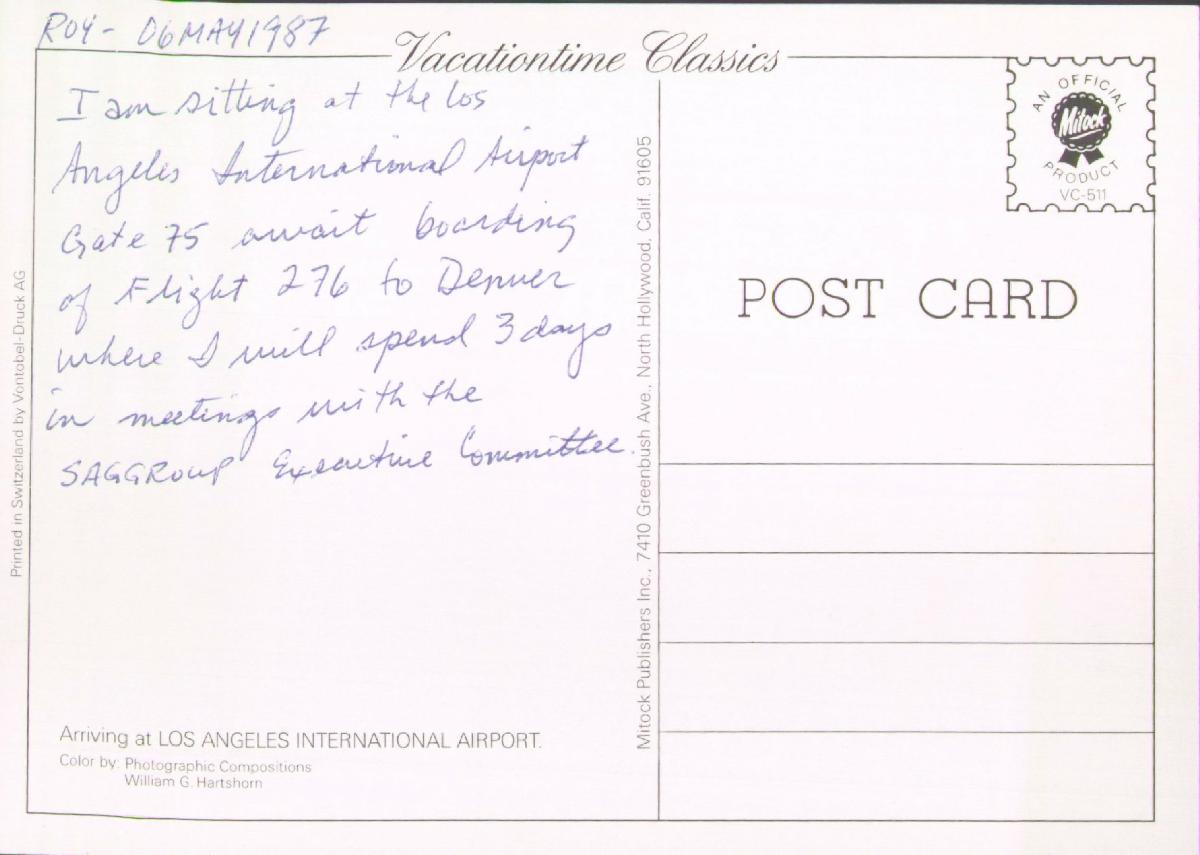 ROY - 06MAY1987
Vacationtime Classics
I am sitting at the Los
Angeles International Airport
Gate 75 await boarding
of Flight 276 to Denver
where I will spend 3 days
in meetings with the
SAGGROUP Executive Committee.
Arriving at LOS ANGELES INTERNATIONAL AIRPORT.
Color by: Photographic Compositions
William G. Hartshorn
Printed in Switzerland by Vontobel-Druck AG
Mitock Publishers Inc., 7410 Greenbush Ave., North Hollywood, Calif. 91605
AN OFFICIAL
Mitock
PRODUCT
VC-511
POST CARD